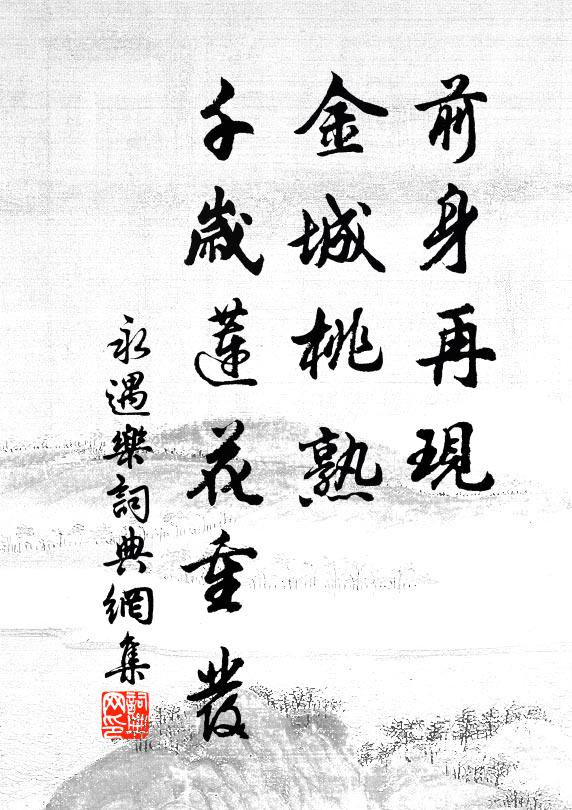 前身再現
金城桃熟
千歲蓮花重發
永遇樂詞典網集